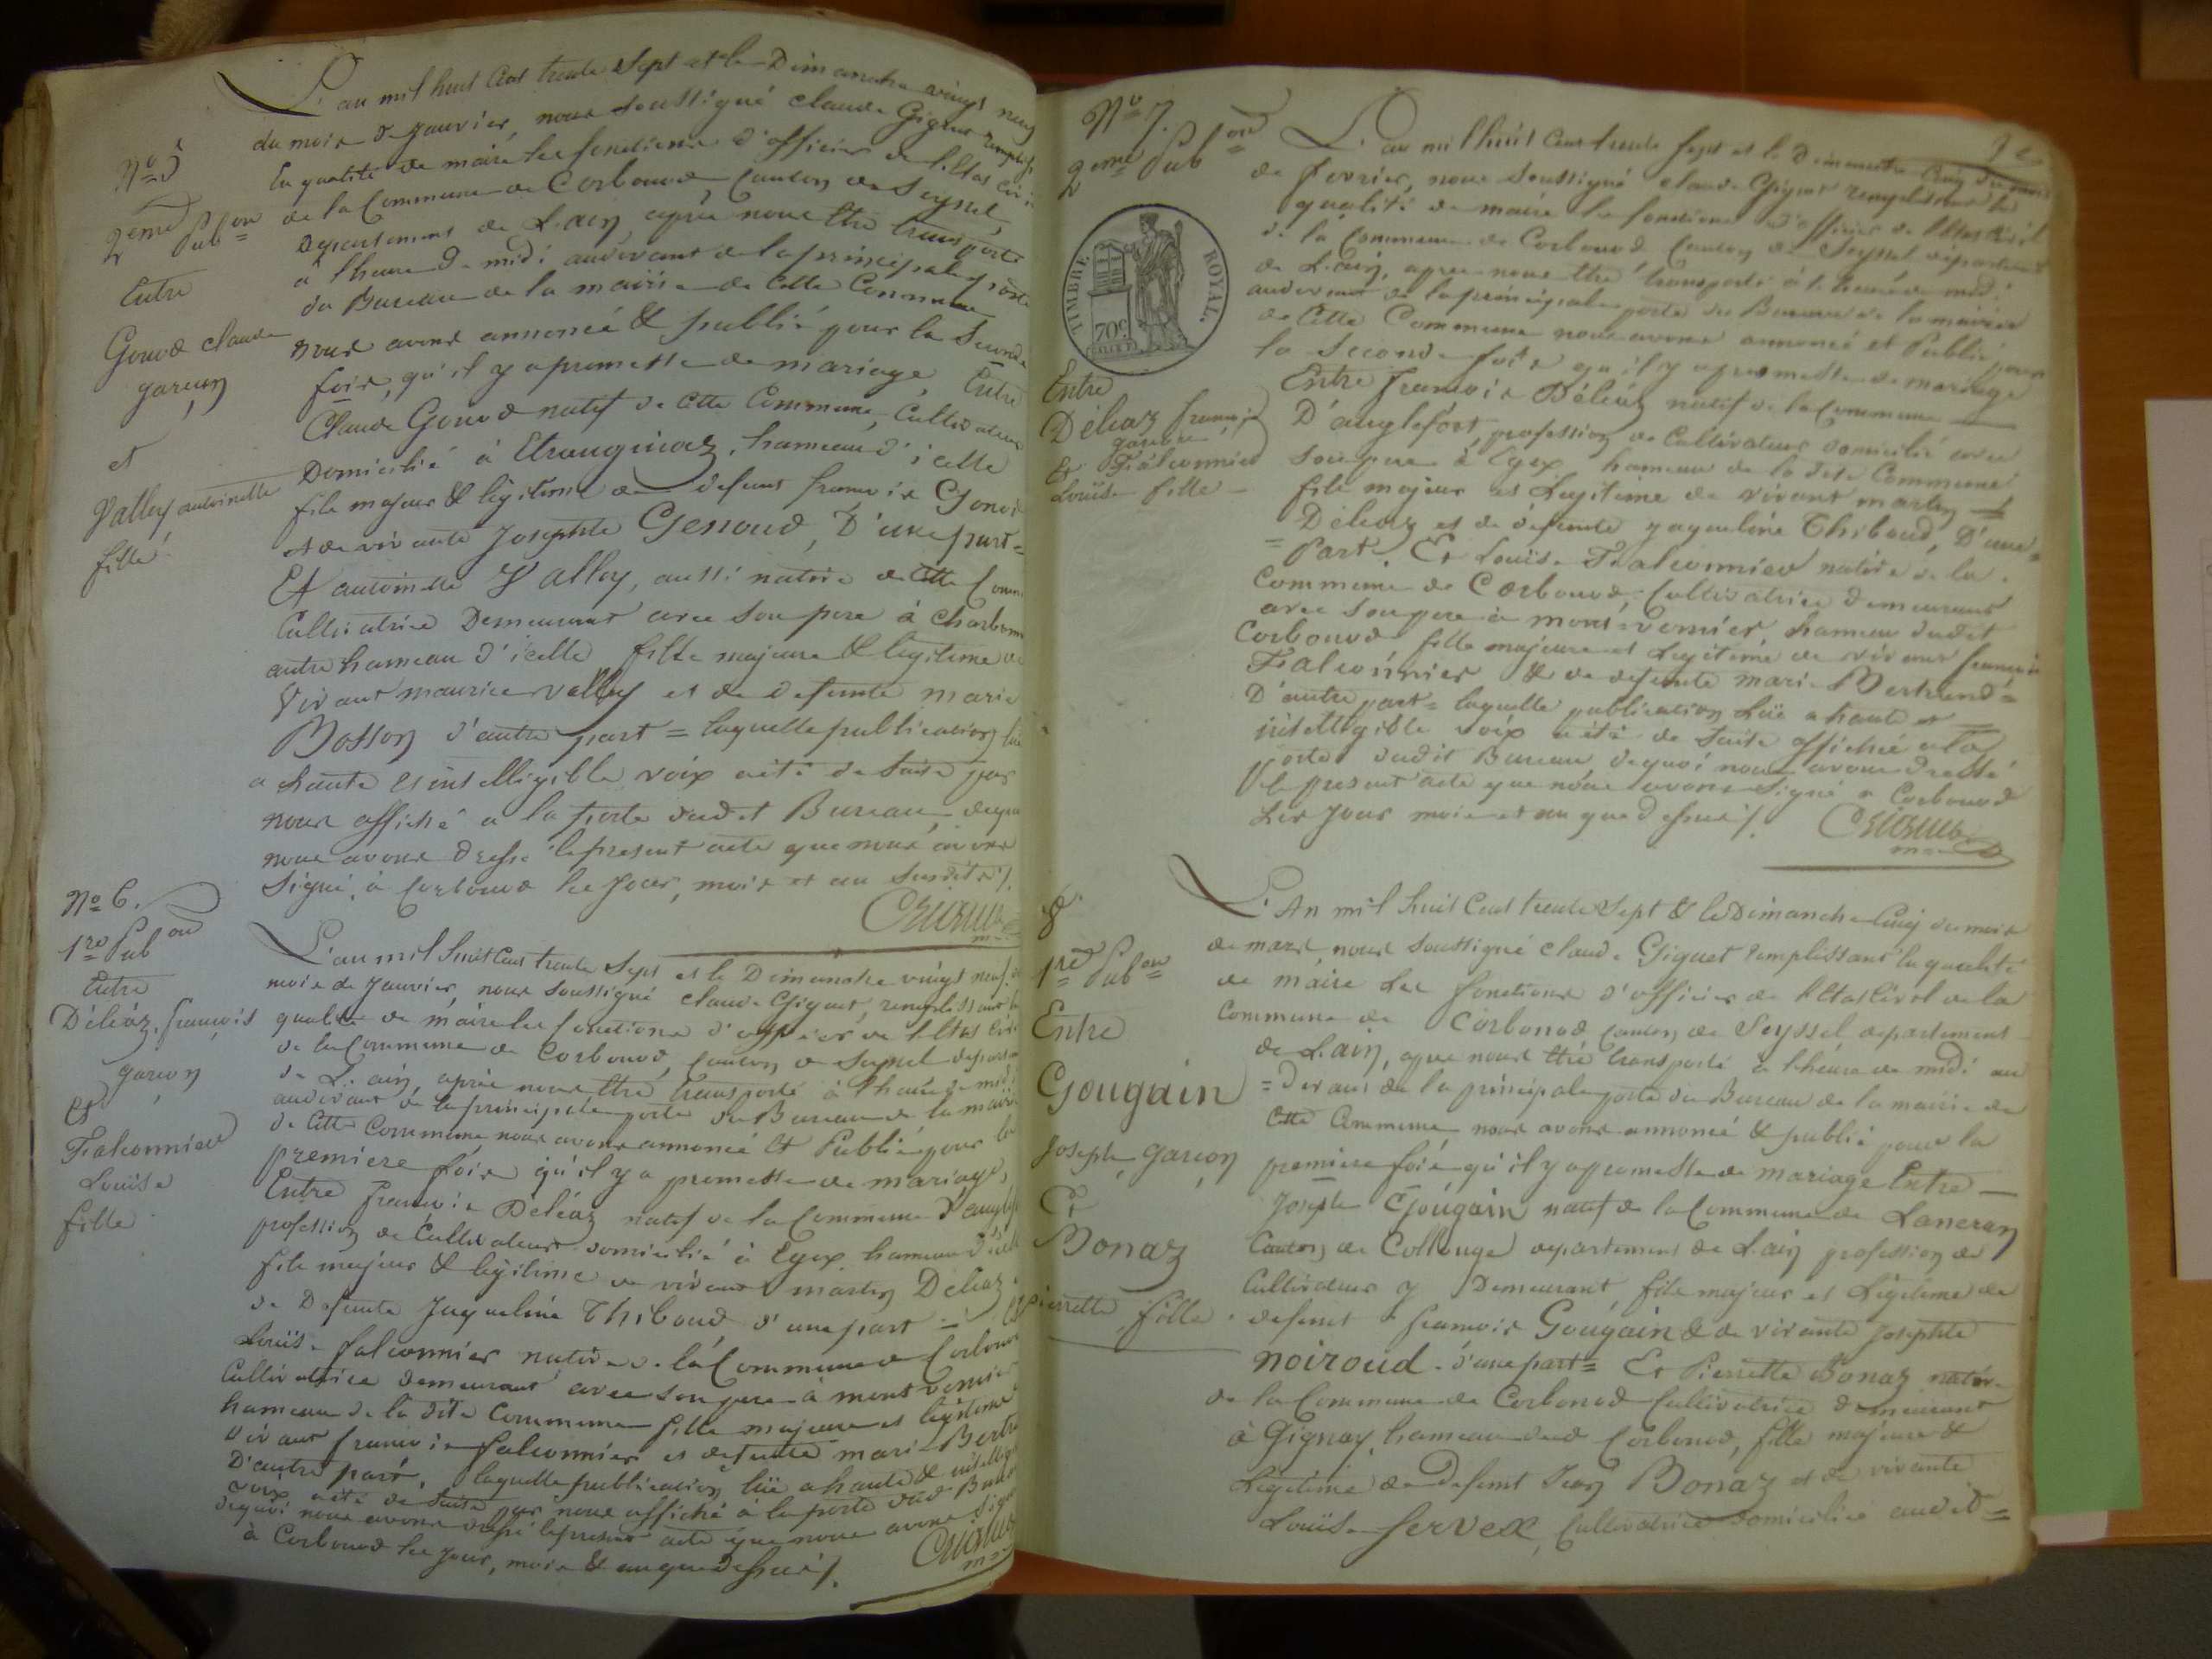 L'an mil huit cent trente sept et le Dimanche vingt neuf
du mois de Janvier, nous soussigné claude Giguet remplissant
la qualité de maire les fonctions d'officier de l'Etat civil
de la Commune de Corbonod, canton de Seyssel,
Departement de L'ain, après nous être transporté
à l'heure de midi audevant de la principale porte
du Bureau de la mairie de cette Commune
nous avons annoncé & publié pour la Seconde
fois, qu'il y a promesse de mariage, Entre
Claude Gonod natif de cette Commune, Cultivateur
Domicilié à Etranginaz, hameau d'icelle
fils majeur & légitime de defunt françois Gonod
et de vivante Josephte Genoud, D'une part=
Et antoinette Vallay, aussi native de cette Comm
Cultivatrice Demeurant avec son pere à Charbon
autre hameau d'icelle fille majeure & légitime de
Vivant maurice vallay et de defunte marie
Bosson d'autre part = laquelle publication lue
a haute et intelligible voix a été de suite par
nous affiché a la porte dudit Bureau, dequoi
nous avons dressé le present acte que nous avons
Signé, à Corbonod les Jour, mois et an Susdits /.
No 5
2eme Pubon
Entre
Gonod claude
garçon
et
Vallay antoinette
fille
No 6.
1re Pubon
Entre
Déléaz, françois
garçon
Et
Falconnier
Louise
fille
L'an mil huit cent trente Sept et le Dimanche vingt neuf du
mois de Janvier, nous soussigné claude Giguet, remplissant la
qualité de maire les fonctions d'officier de l'Etat civil
de la Commune de Corbonod, canton de Seyssel departem
de L'ain, après nous être transporté à l'heure de midi
audevant de la principale porte du Bureau de la mairie
de cette Commune nous avons annoncé et Publié pour la
premiere fois qu'il y a promesse de mariage,
Entre françois Déléaz natif de la Commune d'anglef
profession de Cultivateur domicilié à Egex hameau d'icelle
fils majeur & légitime de vivant martin Deléaz
de Defunte Jaqueline Thiboud d'une part = Et
Louise falconnier native de la Commune de Corbonod
Cultivatrice demeurant avec son pere à mont vernier
hameau de la dite Commune fille majeure et légitime
vivant françois falconnier et defunte marie Bertra
D'autre part, laquelle publication lue a haute & intelligi
voix a été de suite par nous affiché à la porte dud. Bureau
dequoi nous avons dressé le present acte que nous avons signé
à Corbonod les jour, mois & an que dessus /.
No 7.
2eme Pubon
TIMBRE ROYAL.
70c
Entre
Déléaz françois
garçon
Et Falconnier
Louise fille
L'an mil huit cent trente sept et le Dimanche cinq du mois
de fevrier, nous soussigné claude Giguet remplissant la
qualité de maire les fonctions d'officier de l'Etat civil
de la Commune de Corbonod Canton de Seyssel departement
de L'ain, apres nous être transporté à l'heure de midi
audevant de la principale porte du Bureau de la mairie
de cette Commune nous avons annoncé et Publié pour
la Seconde fois qu'il y a promesse de mariage
Entre françois Déléaz natif de la Commune
D'anglefort, profession de Cultivateur domicilié avec
son pere à Egex hameau de la dite Commune
fils majeur et Legitime de vivant martin
Déléaz et de defunte Jaqueline Thiboud, D'une=
= Part. Et Louise Falconnier native de la
Commune de Corbonod, Cultivatrice demeurant
avec son pere à mont-vernier, hameau dudit
Corbonod fille majeure et Legitime de vivant françois
Falconnier & de defunte marie Bertrand=
D'autre part= laquelle publication Lue a haute et
intelligible voix a été de suite affichée a la
Porte dudit Bureau, dequoi nous avons dressé
le present acte que nous avons signé a Corbonod
Les Jour mois et an que dessus /.
8
1re Pubon
Entre
Gougain
Joseph garçon
Et
Bonaz
pierrette fille
L'An mil huit cent trente Sept & le Dimanche Cinq du mois
de mars, nous soussigné claude Giguet remplissant la qualité
de maire Les fonctions d'officier de l'Etat Civil de la
Commune de Corbonod canton de Seyssel departement
de L'ain, apres nous être transporté à l'heure de midi au
=devant de la principale porte du Bureau de la mairie de
Cette Commune nous avons annoncé & publié pour la
premiere fois qu'il y a promesse de mariage Entre
Joseph Gougain natif de la Commune de Lancran
Canton de Collonge departement de L'ain profession de
Cultivateur y Demeurant, fils majeur et Légitime de
defunt francois Gougain & de vivante Josephte
noiroud. d'une part= Et Pierrette Bonaz native
de la Commune de Corbonod Cultivatrice demeurant
à Gignay, hameau dud Corbonod, fille majeure &
Legitime de Defunt Jean Bonaz et de vivante
Louise Servex, Cultivatrice domiciliée audit=